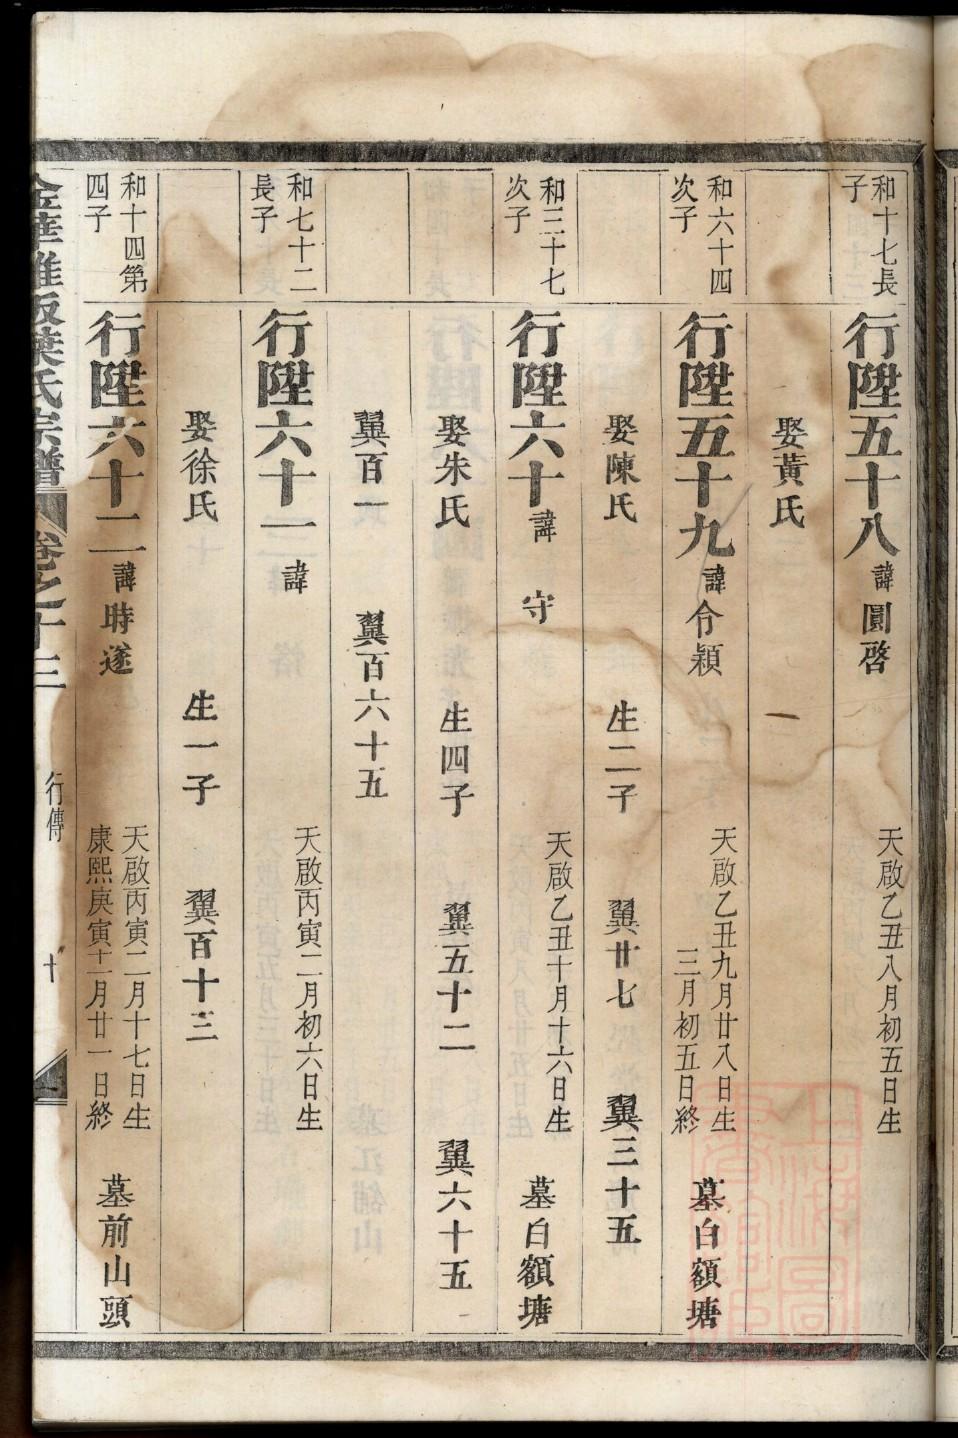 和十七長
子
行陞五十八 諱圓啓
天啟乙丑八月初五日生
娶黃氏
和六十四
次子
行陞五十九 諱令穎
天啟乙丑九月廿八日生
三月初五日終
墓白額塘
娶陳氏 生二子 翼廿七 翼三十五
和三十七
次子
行陞六十 諱守
天啟乙丑十月十六日生
墓白額塘
娶朱氏 生四子 翼五十二 翼六十五
翼百一 翼百六十五
和七十二
長子
行陞六十一 諱
天啟丙寅二月初六日生
娶徐氏 生一子 翼百十三
和十四第
四子
行陞六十二 諱時遂
天啟丙寅二月十七日生
康熙庚寅十二月廿一日終
墓前山頭
葉氏宗譜 卷之十三 行傳 十